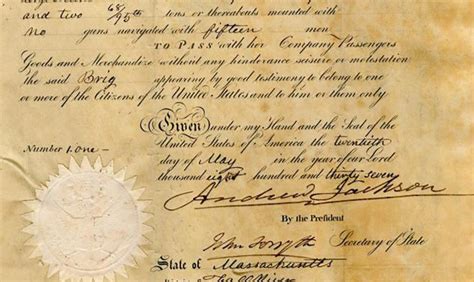 and two 68/95th tons or thereabouts mounted with
no guns navigated with fifteen men
TO PASS with her Company Passengers
Goods and Merchandize without any hinderance seisure or molestation
the said Brig appearing by good testimony to belong to one
or more of the Citizens of the United States and to him or them only
Given under my Hand and the Seal of the
United States of America the twentieth
Number 1. one – day of May in the year of our Lord
thousand eight hundred and thirty seven
Andrew Jackson
By the President
John Forsyth Secretary of State
State of Massachusetts